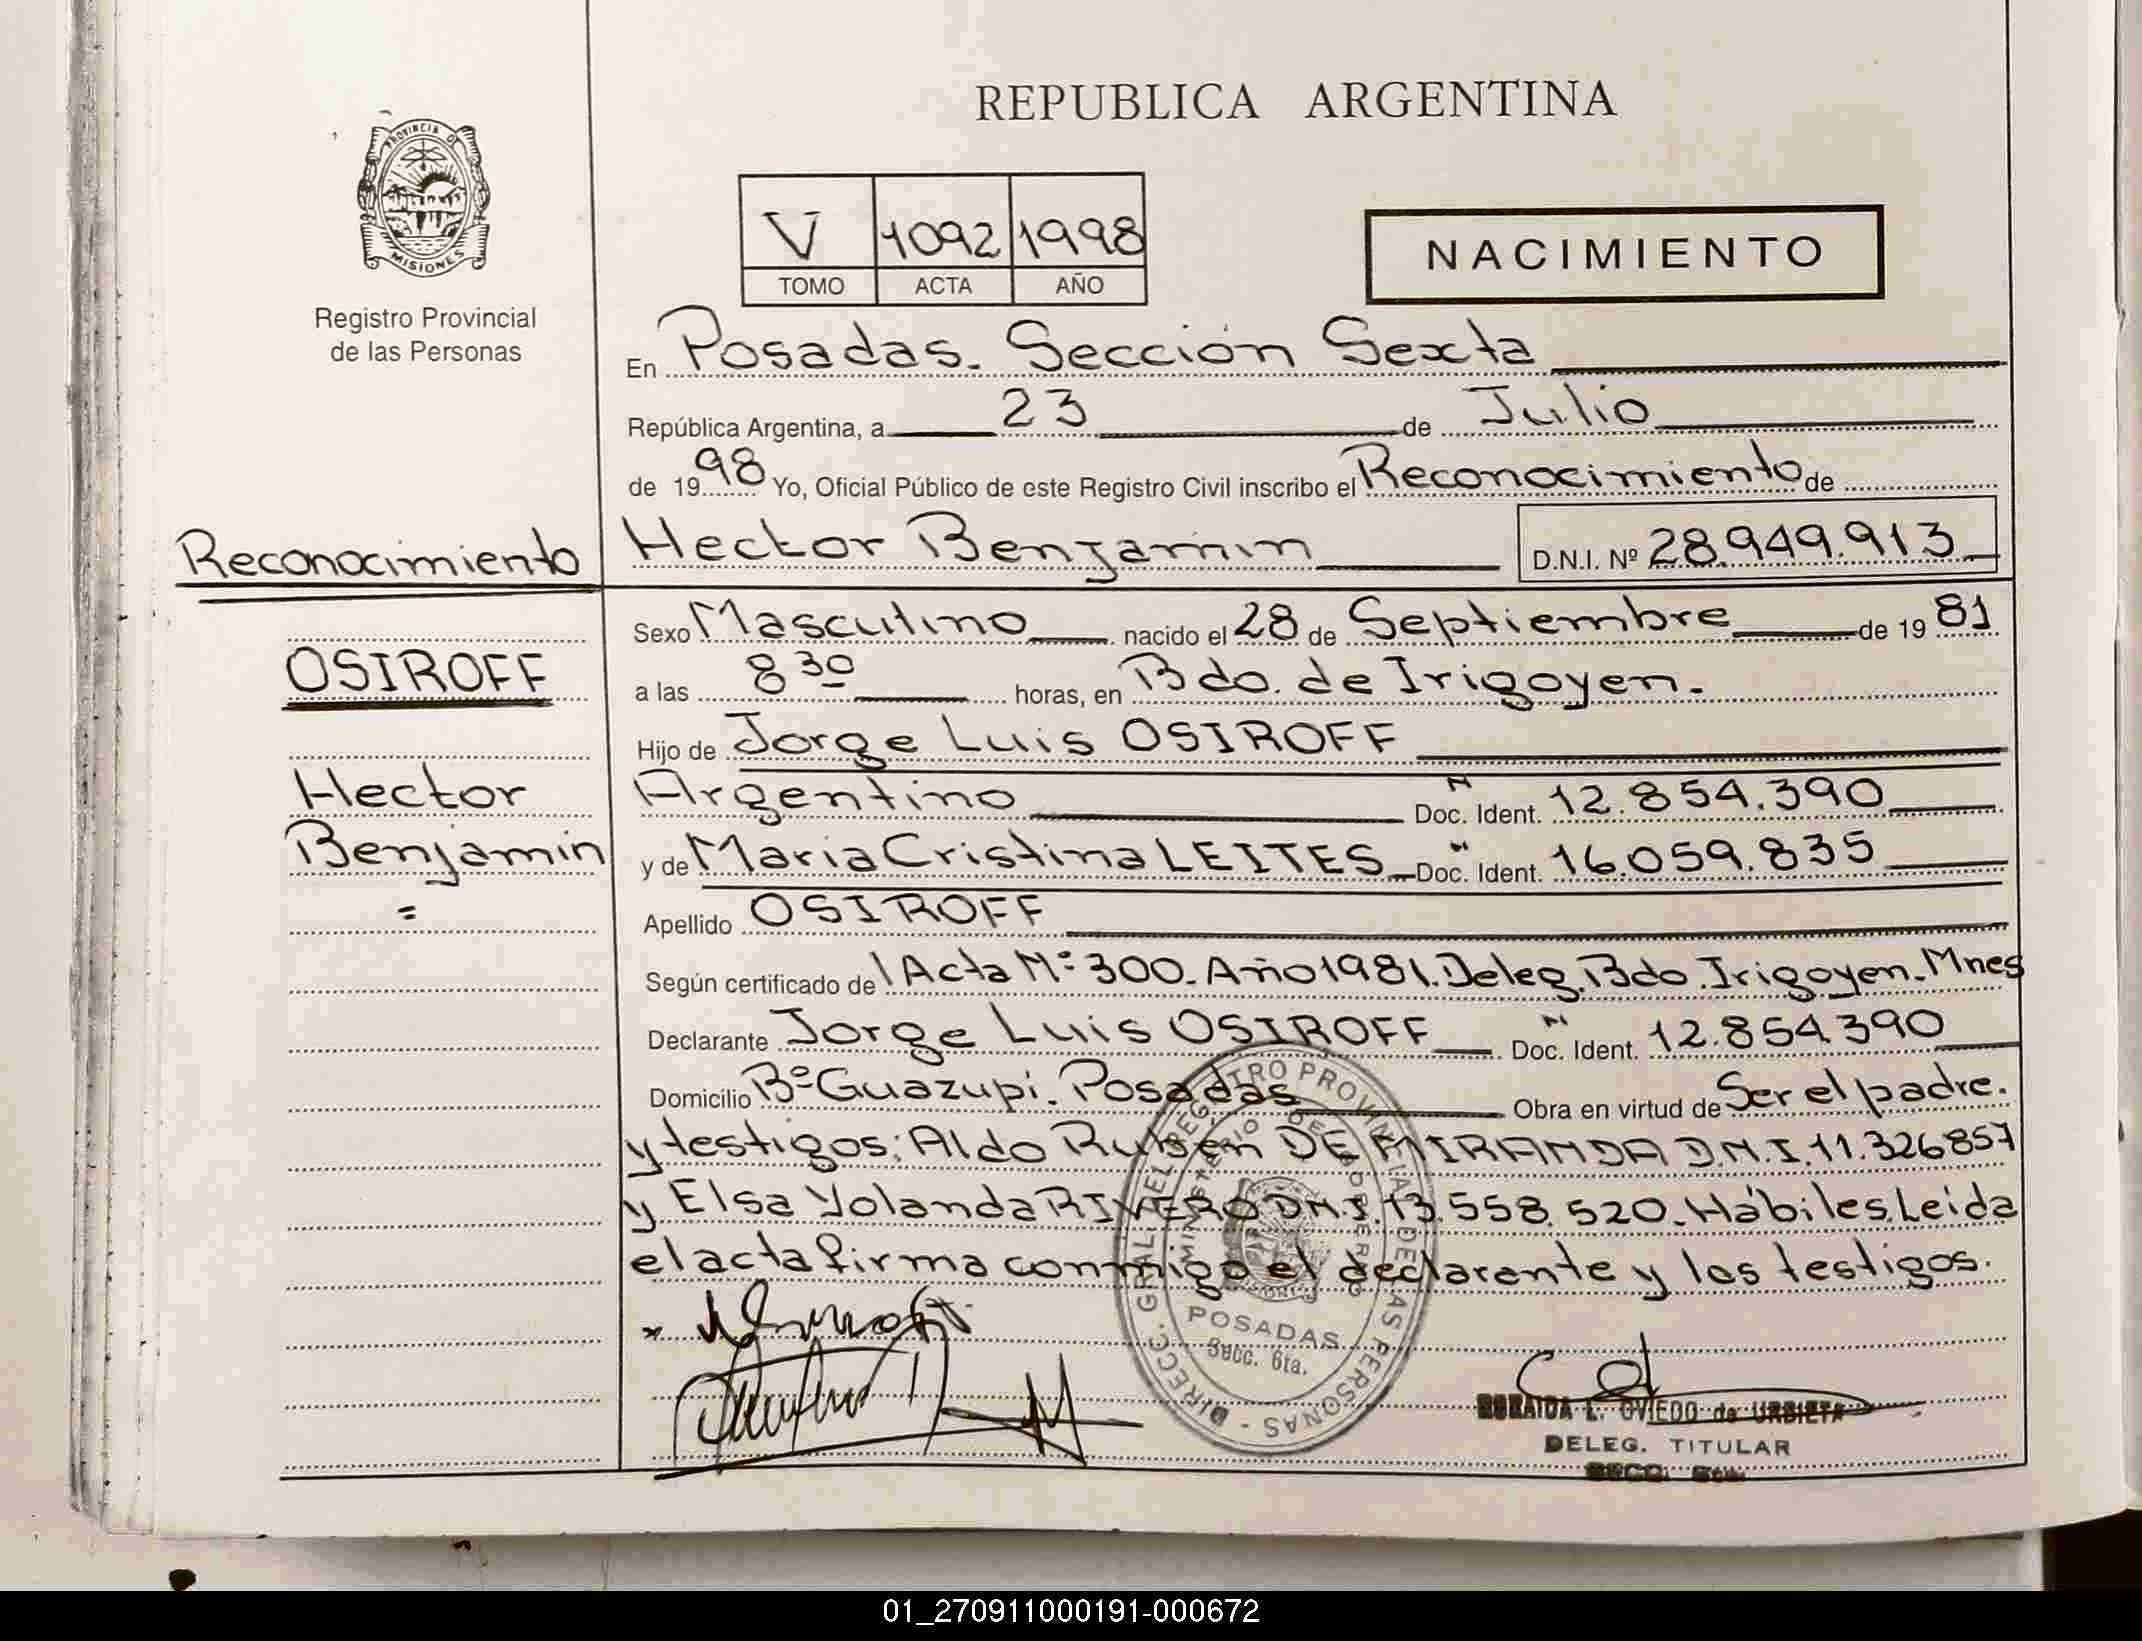 REPUBLICA ARGENTINA
PROVINCIA DE
MISIONES
Registro Provincial
de las Personas
V 1092 1998
TOMO ACTA AÑO
NACIMIENTO
En Posadas. Sección Sexta
República Argentina, a 23 de Julio
de 1998 Yo, Oficial Público de este Registro Civil inscribo el Reconocimiento de
Hector Benjamin D.N.I. Nº 28.949.913
Reconocimiento
OSIROFF
Hector
Benjamin
=
Sexo Masculino nacido el 28 de Septiembre de 1981
a las 8 30 horas, en Bdo. de Irigoyen.
Hijo de Jorge Luis OSIROFF
Argentino Doc. Ident. N 12.854.390
y de Maria Cristina LEITES Doc. Ident. N 16.059.835
Apellido OSIROFF
Según certificado de Acta Nº 300. Año 1981. Deleg. Bdo. Irigoyen. Mnes
Declarante Jorge Luis OSIROFF Doc. Ident. N 12.854.390
Domicilio Bº Guazupi. Posadas Obra en virtud de Ser el padre.
y testigos: Aldo Rubén DE MIRANDA D.N.I. 11.326857
y Elsa Yolanda RIVERO D.N.I. 13.558.520. Hábiles. Leida
el acta firma conmigo el declarante y los testigos.
DIRECC. GRAL. DEL REGISTRO PROVINCIAL DE LAS PERSONAS -
MINISTERIO DE GOBIERNO
MISIONES
POSADAS
Secc. 6ta.
L. OVIEDO de URBIETA
DELEG. TITULAR
SECC. 6ta.
01_270911000191-000672